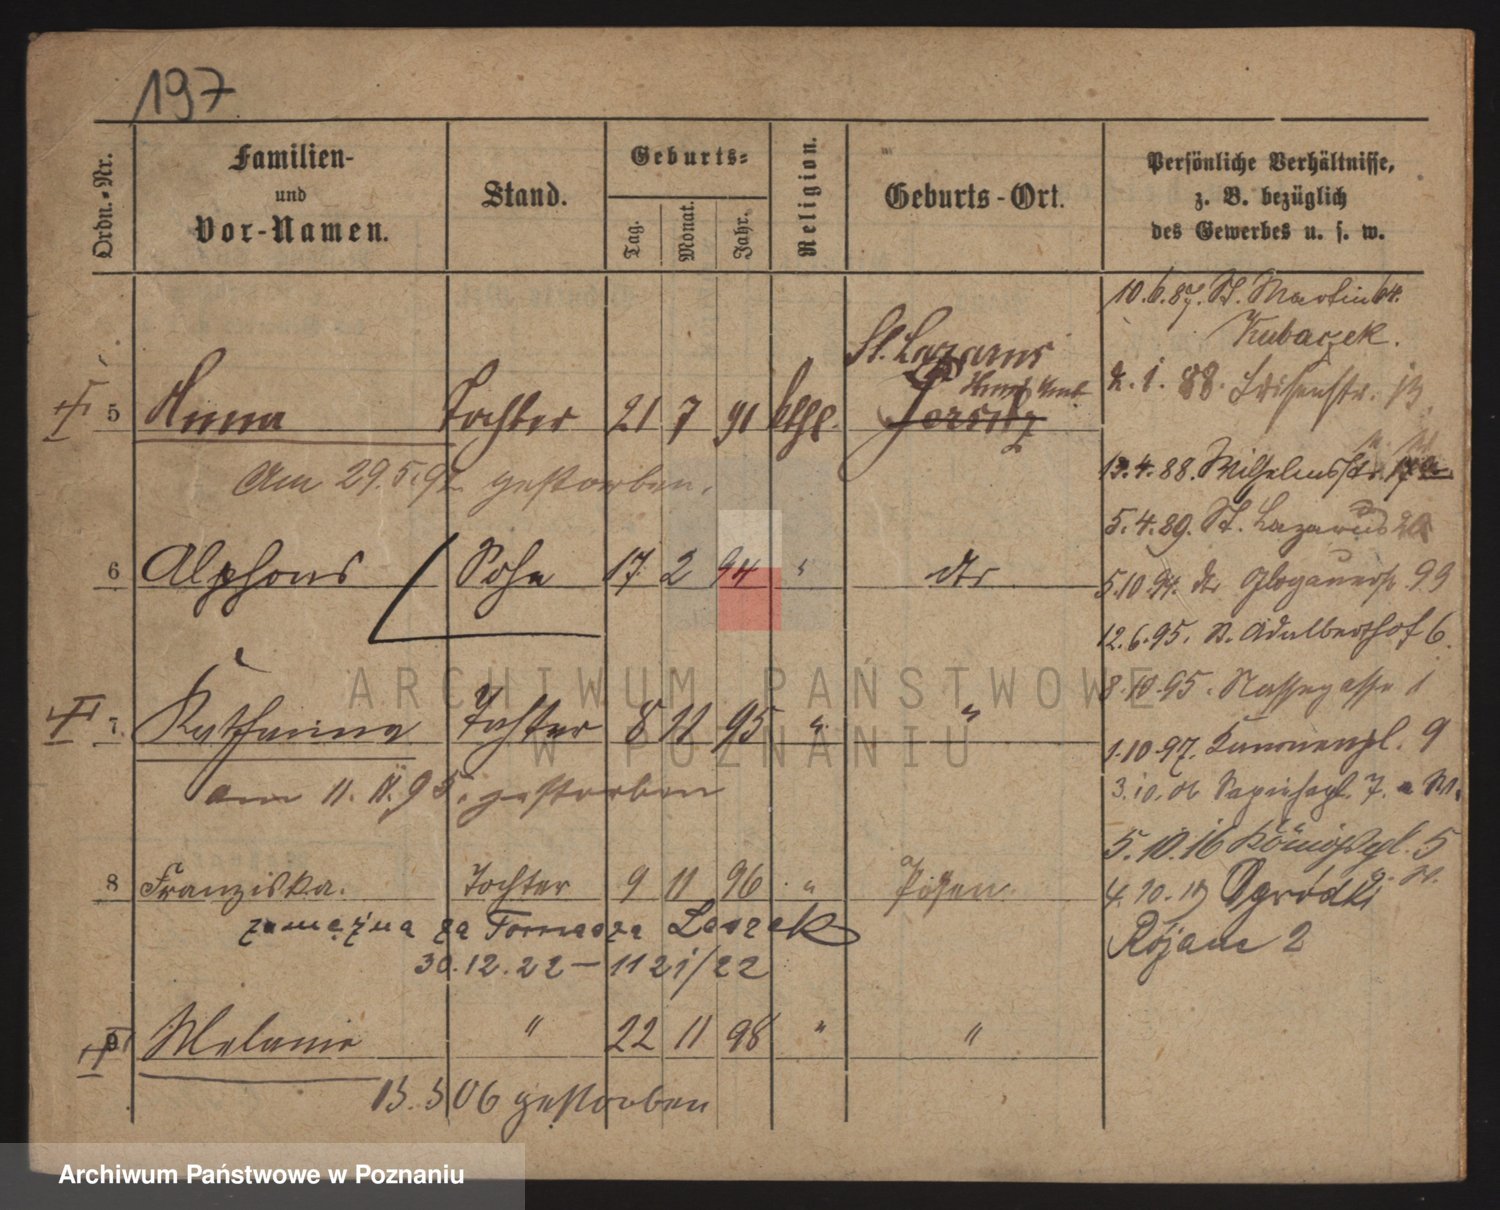 197
Ordn.-Nr.
Familien-
und
Vor-Namen.
Stand.
Geburts-
Tag.
Monat.
Jahr.
Religion.
Geburts-Ort.
Persönliche Verhältnisse,
z. B. bezüglich
des Gewerbes u. s. w.
10.6.87. St. Martin 64.
Kubaczek.
St. Lazarus
5 Anna Tochter 21 7 91 kthl. Jersitz
Am 29.5.92 gestorben.
6 Alphons Sohn 17. 2 94 " dto
7. Katharina Tochter 8 11 95 " "
am 11. 11. 95. gestorben
8 Franziska. Tochter 9 11 96 " Posen.
zamężna za Tomasza Laszak
30.12.22 – 1121/22
9 Melanie " 22 11 98 " "
13.3 06 gestorben
2.1.88. Louisenstr. 13
13.4.88. Wilhelmsstr.
5.4.89. St. Lazarus
5.10.94. dto Glogauerstr 99
12.6.95. St. Adalberthof 6.
8.10.95. Nassegasse 1
1.10.97. Kanonenpl. 9
3.10.06 Sapiehapl. 7.
5.10.16 Königspl. 5
4.10.19 Ogródki
Różane 2
ARCHIWUM PAŃSTWOWE
W POZNANIU
Archiwum Państwowe w Poznaniu